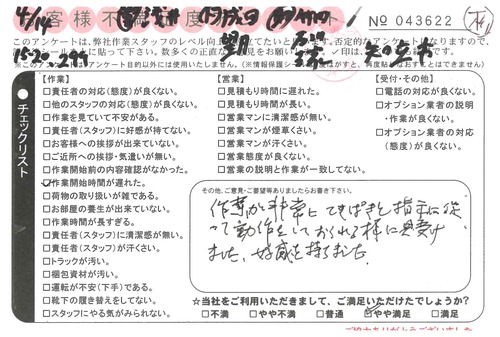 4/14
お客様不満足度アンケート
No 043622
このアンケートは、弊社作業スタッフのレベル向上に役立てたいと
15-20-299
【作業】
□責任者の対応(態度)が良くない。
□他のスタッフの対応(態度)が良くない。
□作業を見ていて不安がある。
□責任者(スタッフ)に好感が持てない。
□お客様への挨拶が出来ていない。
□ご近所への挨拶・気遣いが無い。
□作業開始前の内容確認がなかった。
☑作業開始時間が遅れた。
□荷物の取り扱いが雑である。
□お部屋の養生が出来ていない。
□作業時間が長すぎる。
□責任者(スタッフ)に清潔感が無い。
□責任者(スタッフ)が汗くさい。
□トラックが汚い。
□梱包資材が汚い。
□運転が不安(下手)である。
□靴下の履き替えをしてない。
□スタッフにやる気がみられない。
チェックリスト
【営業】
□見積もり時間に遅れた。
□見積もり時間が長い。
□営業マンに清潔感が無い。
□営業マンが煙草くさい。
□営業マンが汗くさい。
□営業態度が良くない。
□営業の説明と作業が一致してない。
【受付・その他】
□電話の対応が良くない。
□オプション業者の説明
・作業が良くない。
□オプション業者の対応
(態度)が良くない。
その他、ご意見・ご要望等ありましたらお書き下さい。
作業が非常にてきぱきと指示に従
って動作をしておられる様に見受け
ました。好感を持てました。
☆当社をご利用いただきまして、ご満足いただけたでしょうか?
□不満 □やや不満 □普通 ☑やや満足 □満足
ご協力ありがとうございました